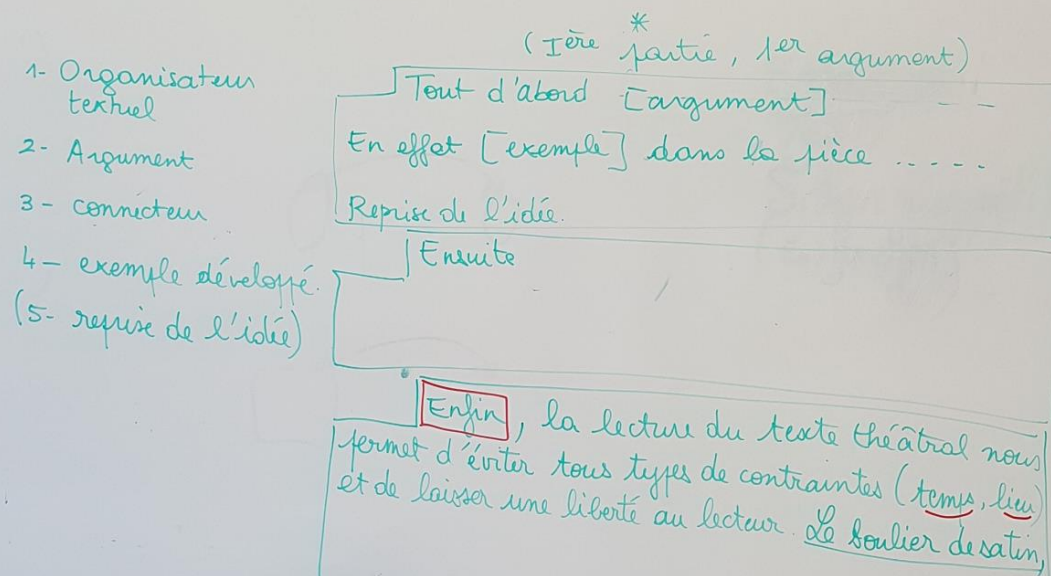 1- Organisateur
textuel
2- Argument
3- connecteur
4- exemple développé.
(5- reprise de l'idée)
*
(Ière partie, 1er argument)
Tout d'abord [argument] - -
En effet [exemple] dans la pièce .....
Reprise de l'idée.
Ensuite
Enfin, la lecture du texte théâtral nous
permet d'éviter tous types de contraintes (temps, lieu)
et de laisser une liberté au lecteur. Le Soulier de satin,